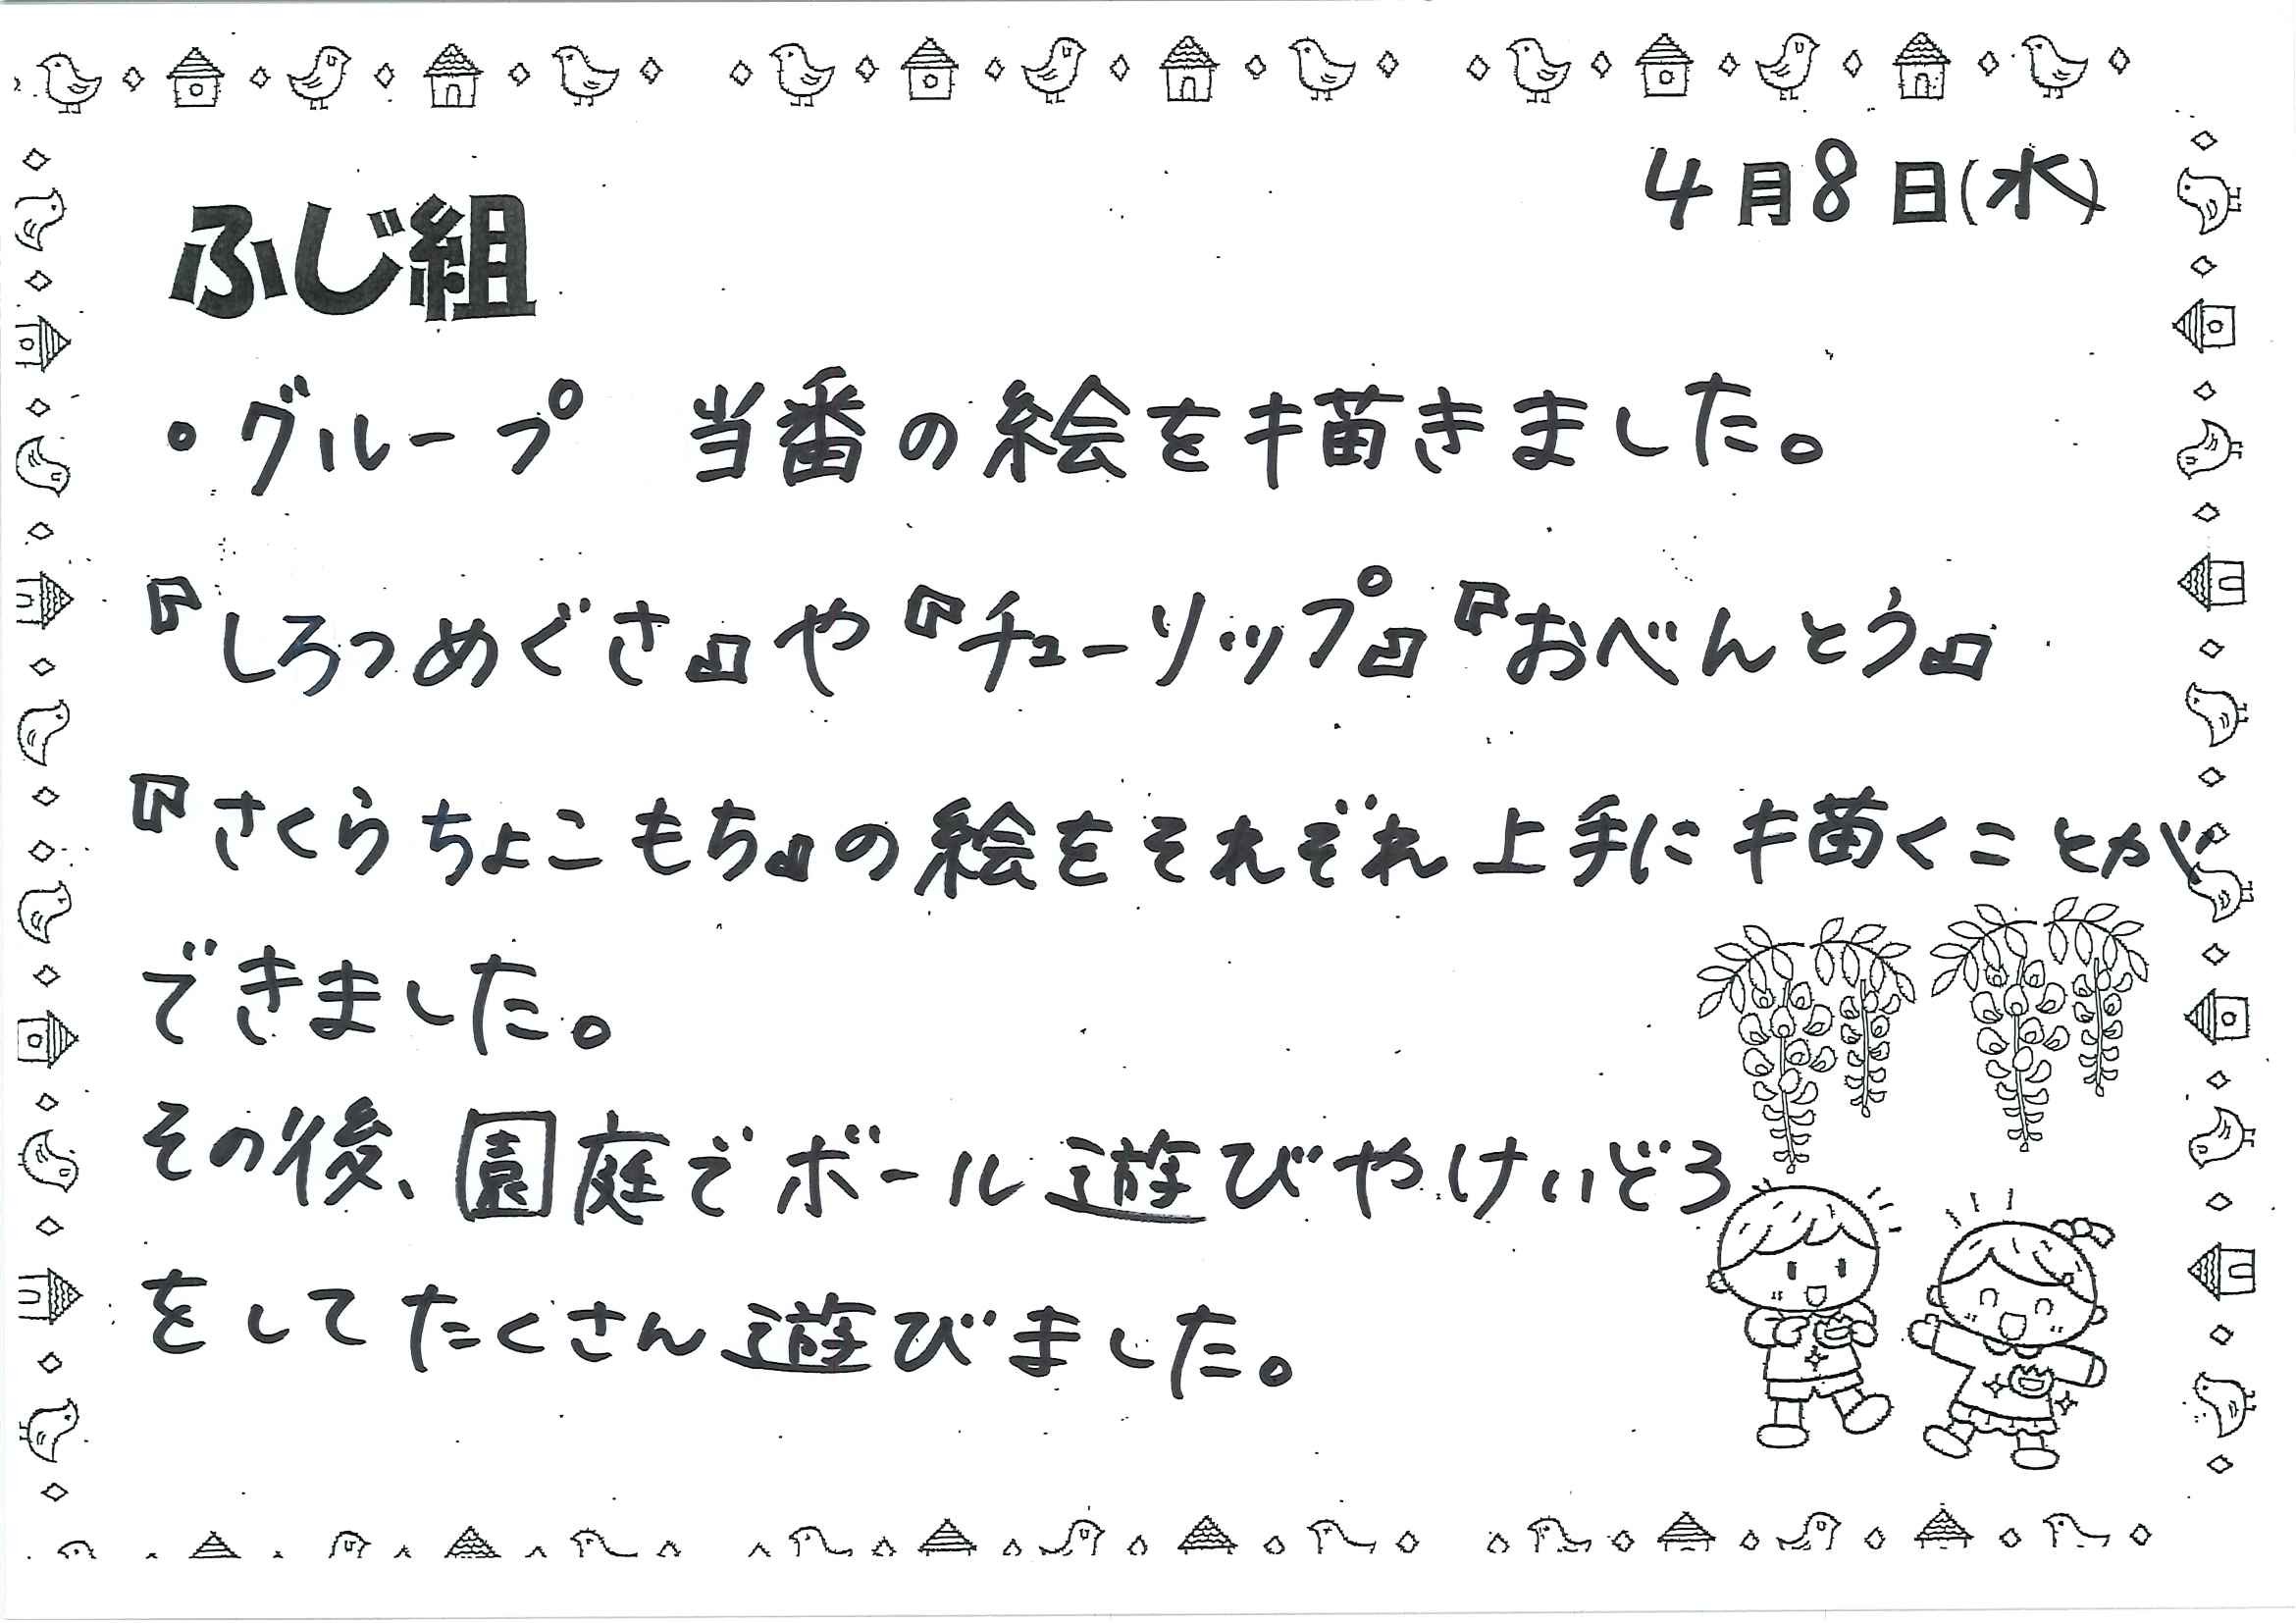 4月8日(水)
ふじ組
・グループ 当番の絵を描きました。
『しろつめぐさ』や『チューリップ』『おべんとう』
『さくらちょこもち』の絵をそれぞれ上手に描くことが
できました。
その後、園庭でボール遊びやけいどろ
をしてたくさん遊びました。